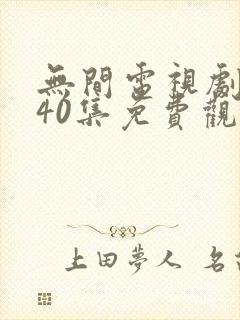 無間電視劇
40集免費觀
上田夢人 名